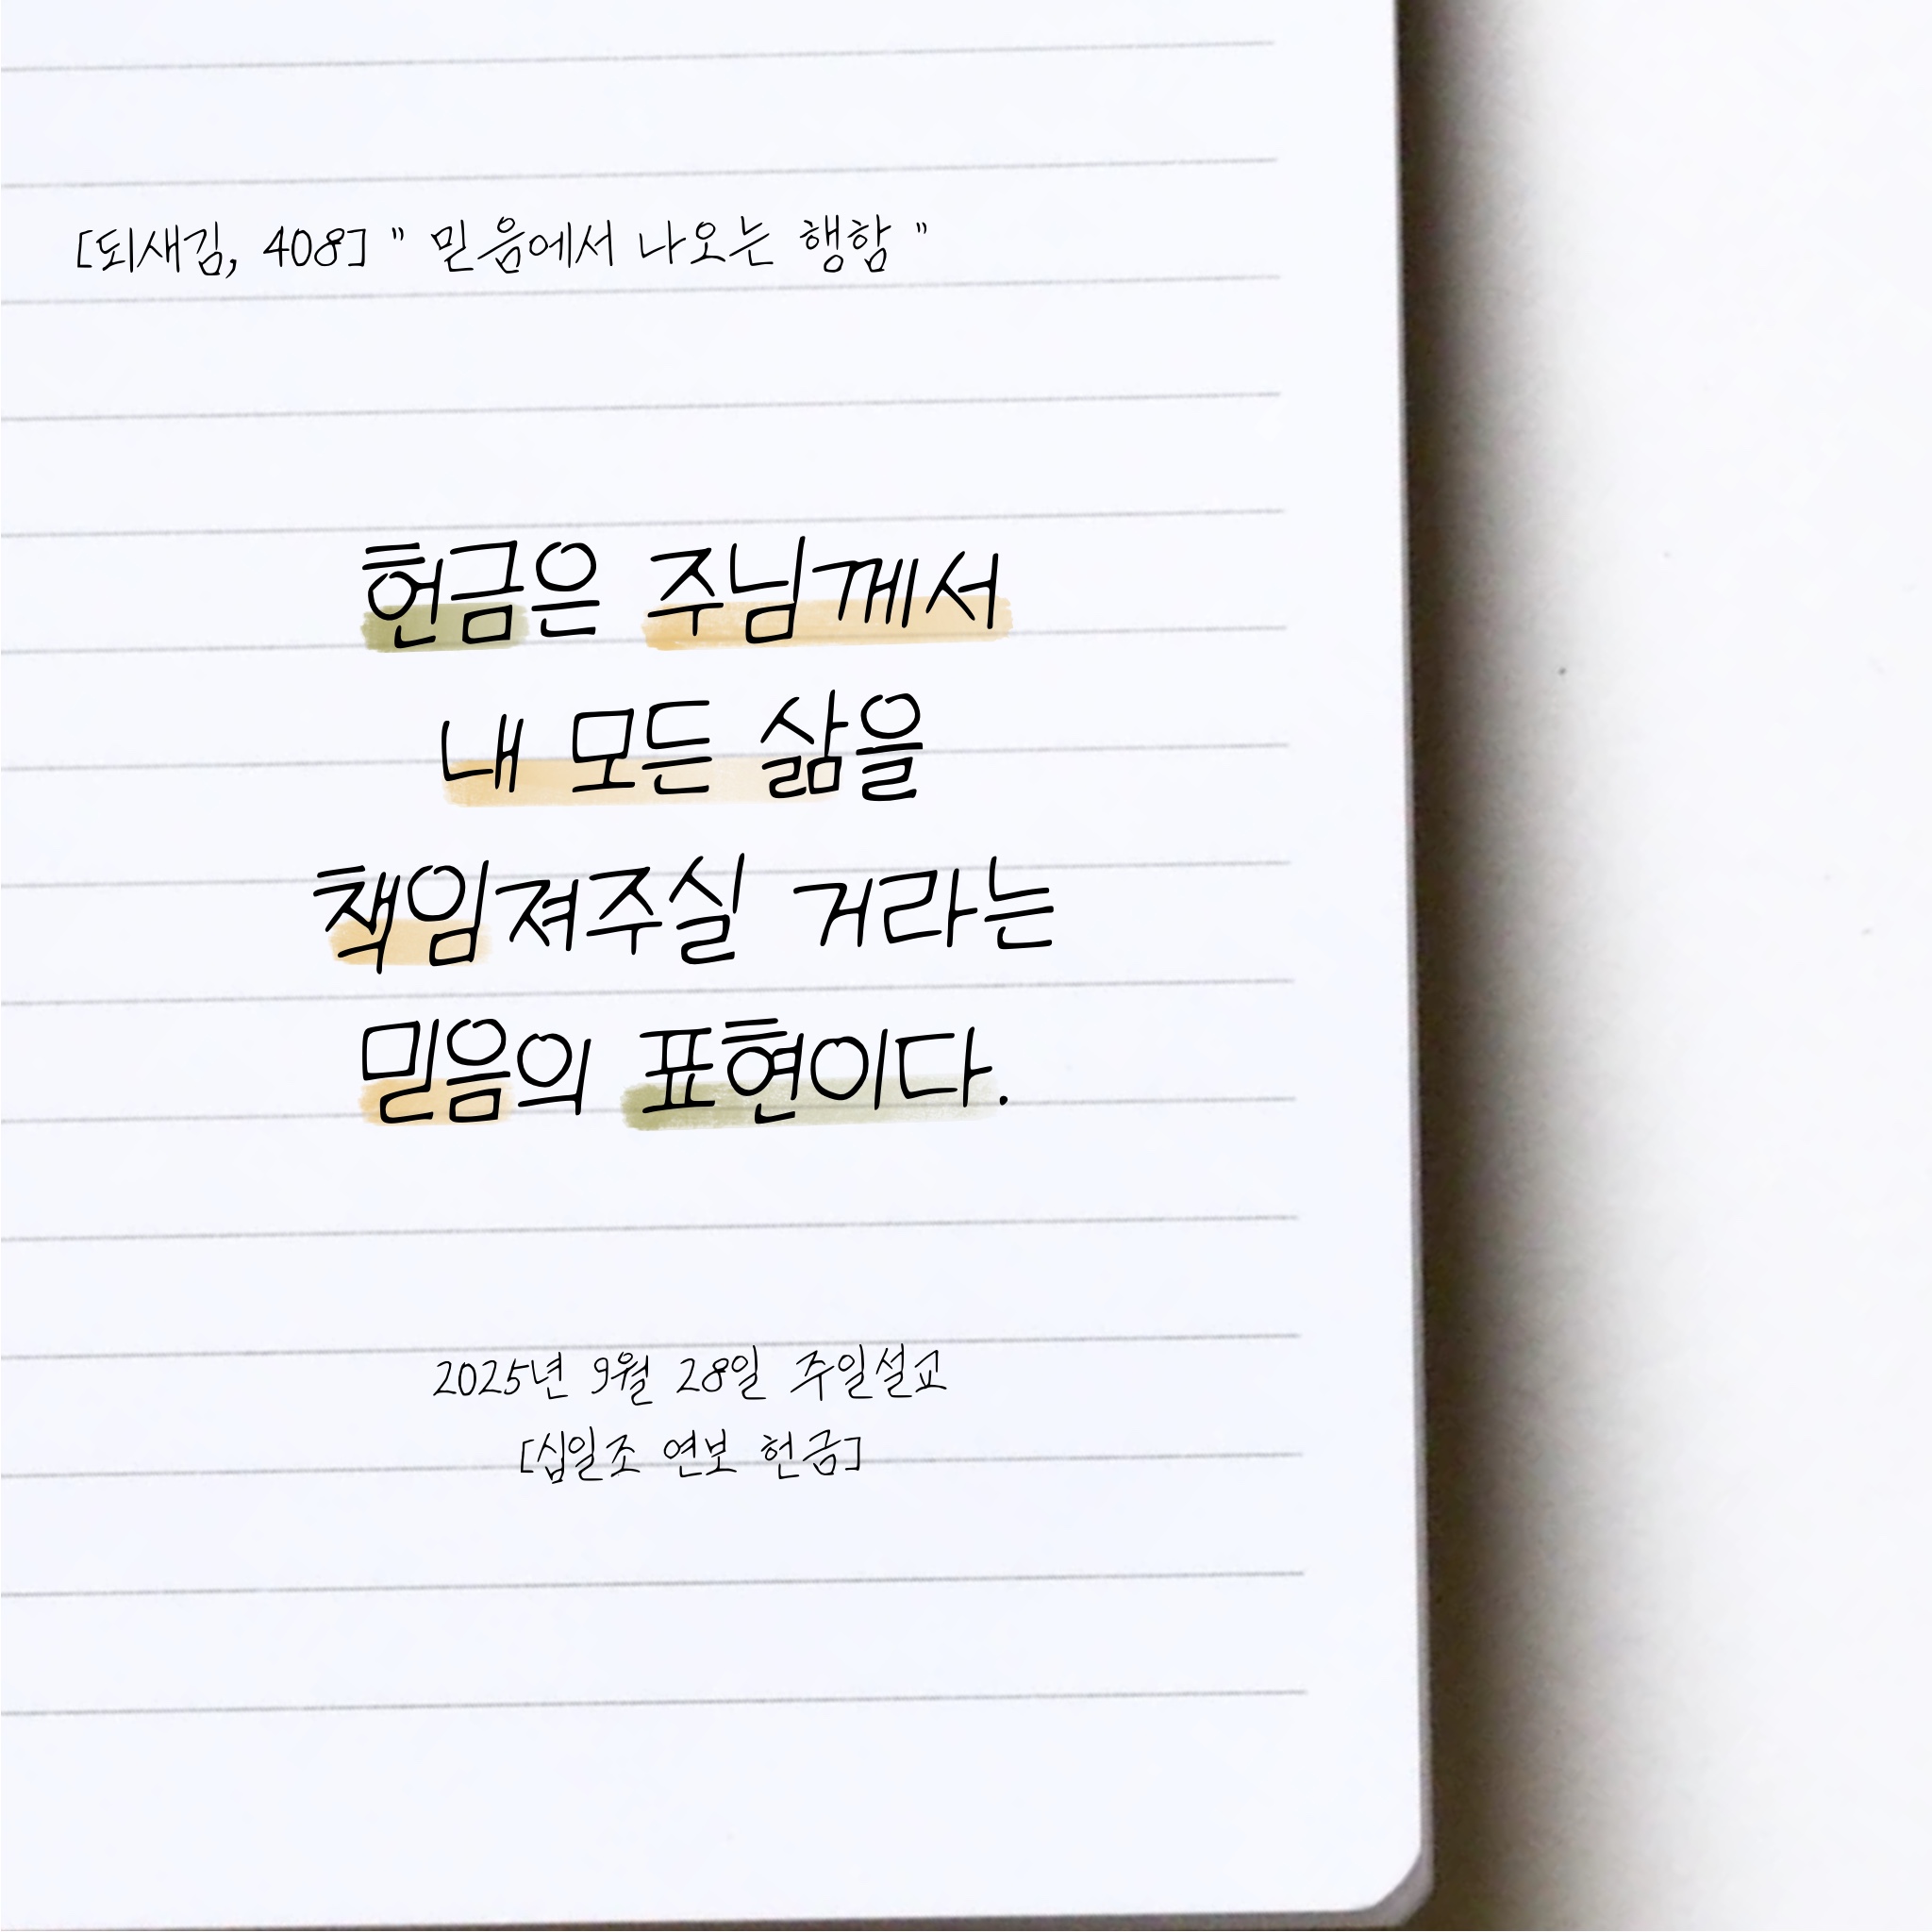 [되새김, 408] " 믿음에서 나오는 행함 "
헌금은 주님께서
내 모든 삶을
책임져주실 거라는
믿음의 표현이다.
2025년 9월 28일 주일설교
[십일조 연보 헌금]